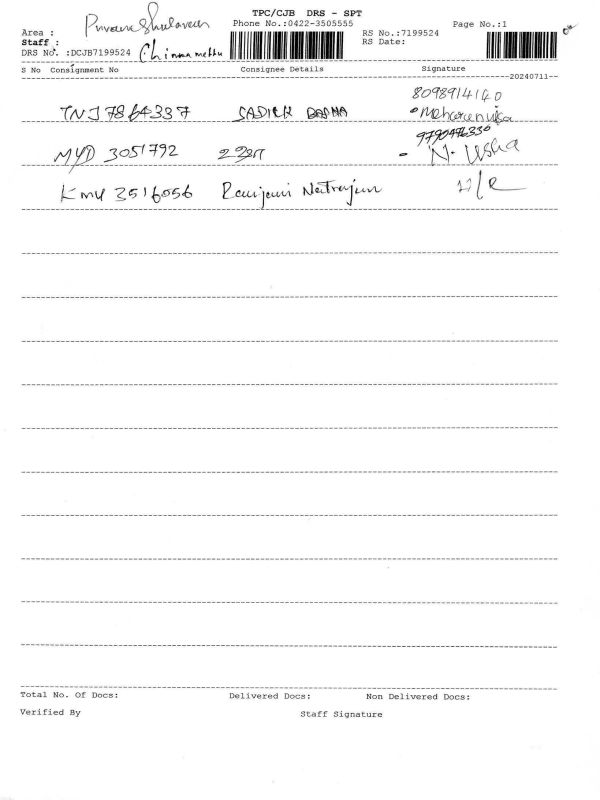 TPC/CJB DRS - SPT
Phone No.:0422-3505555 Page No.:1
Area :
Staff : RS No.:7199524
RS Date:
DRS No. :DCJB7199524 Chinnamettu
S No Consignment No Consignee Details Signature
20240711
8098914140
TNJ7864337 SADICK BASHA Meharennisa
9790496330
MYD 3051792 N. Usha
KMU 3516056 Ranjani Natrajan
Total No. Of Docs: Delivered Docs: Non Delivered Docs:
Verified By Staff Signature